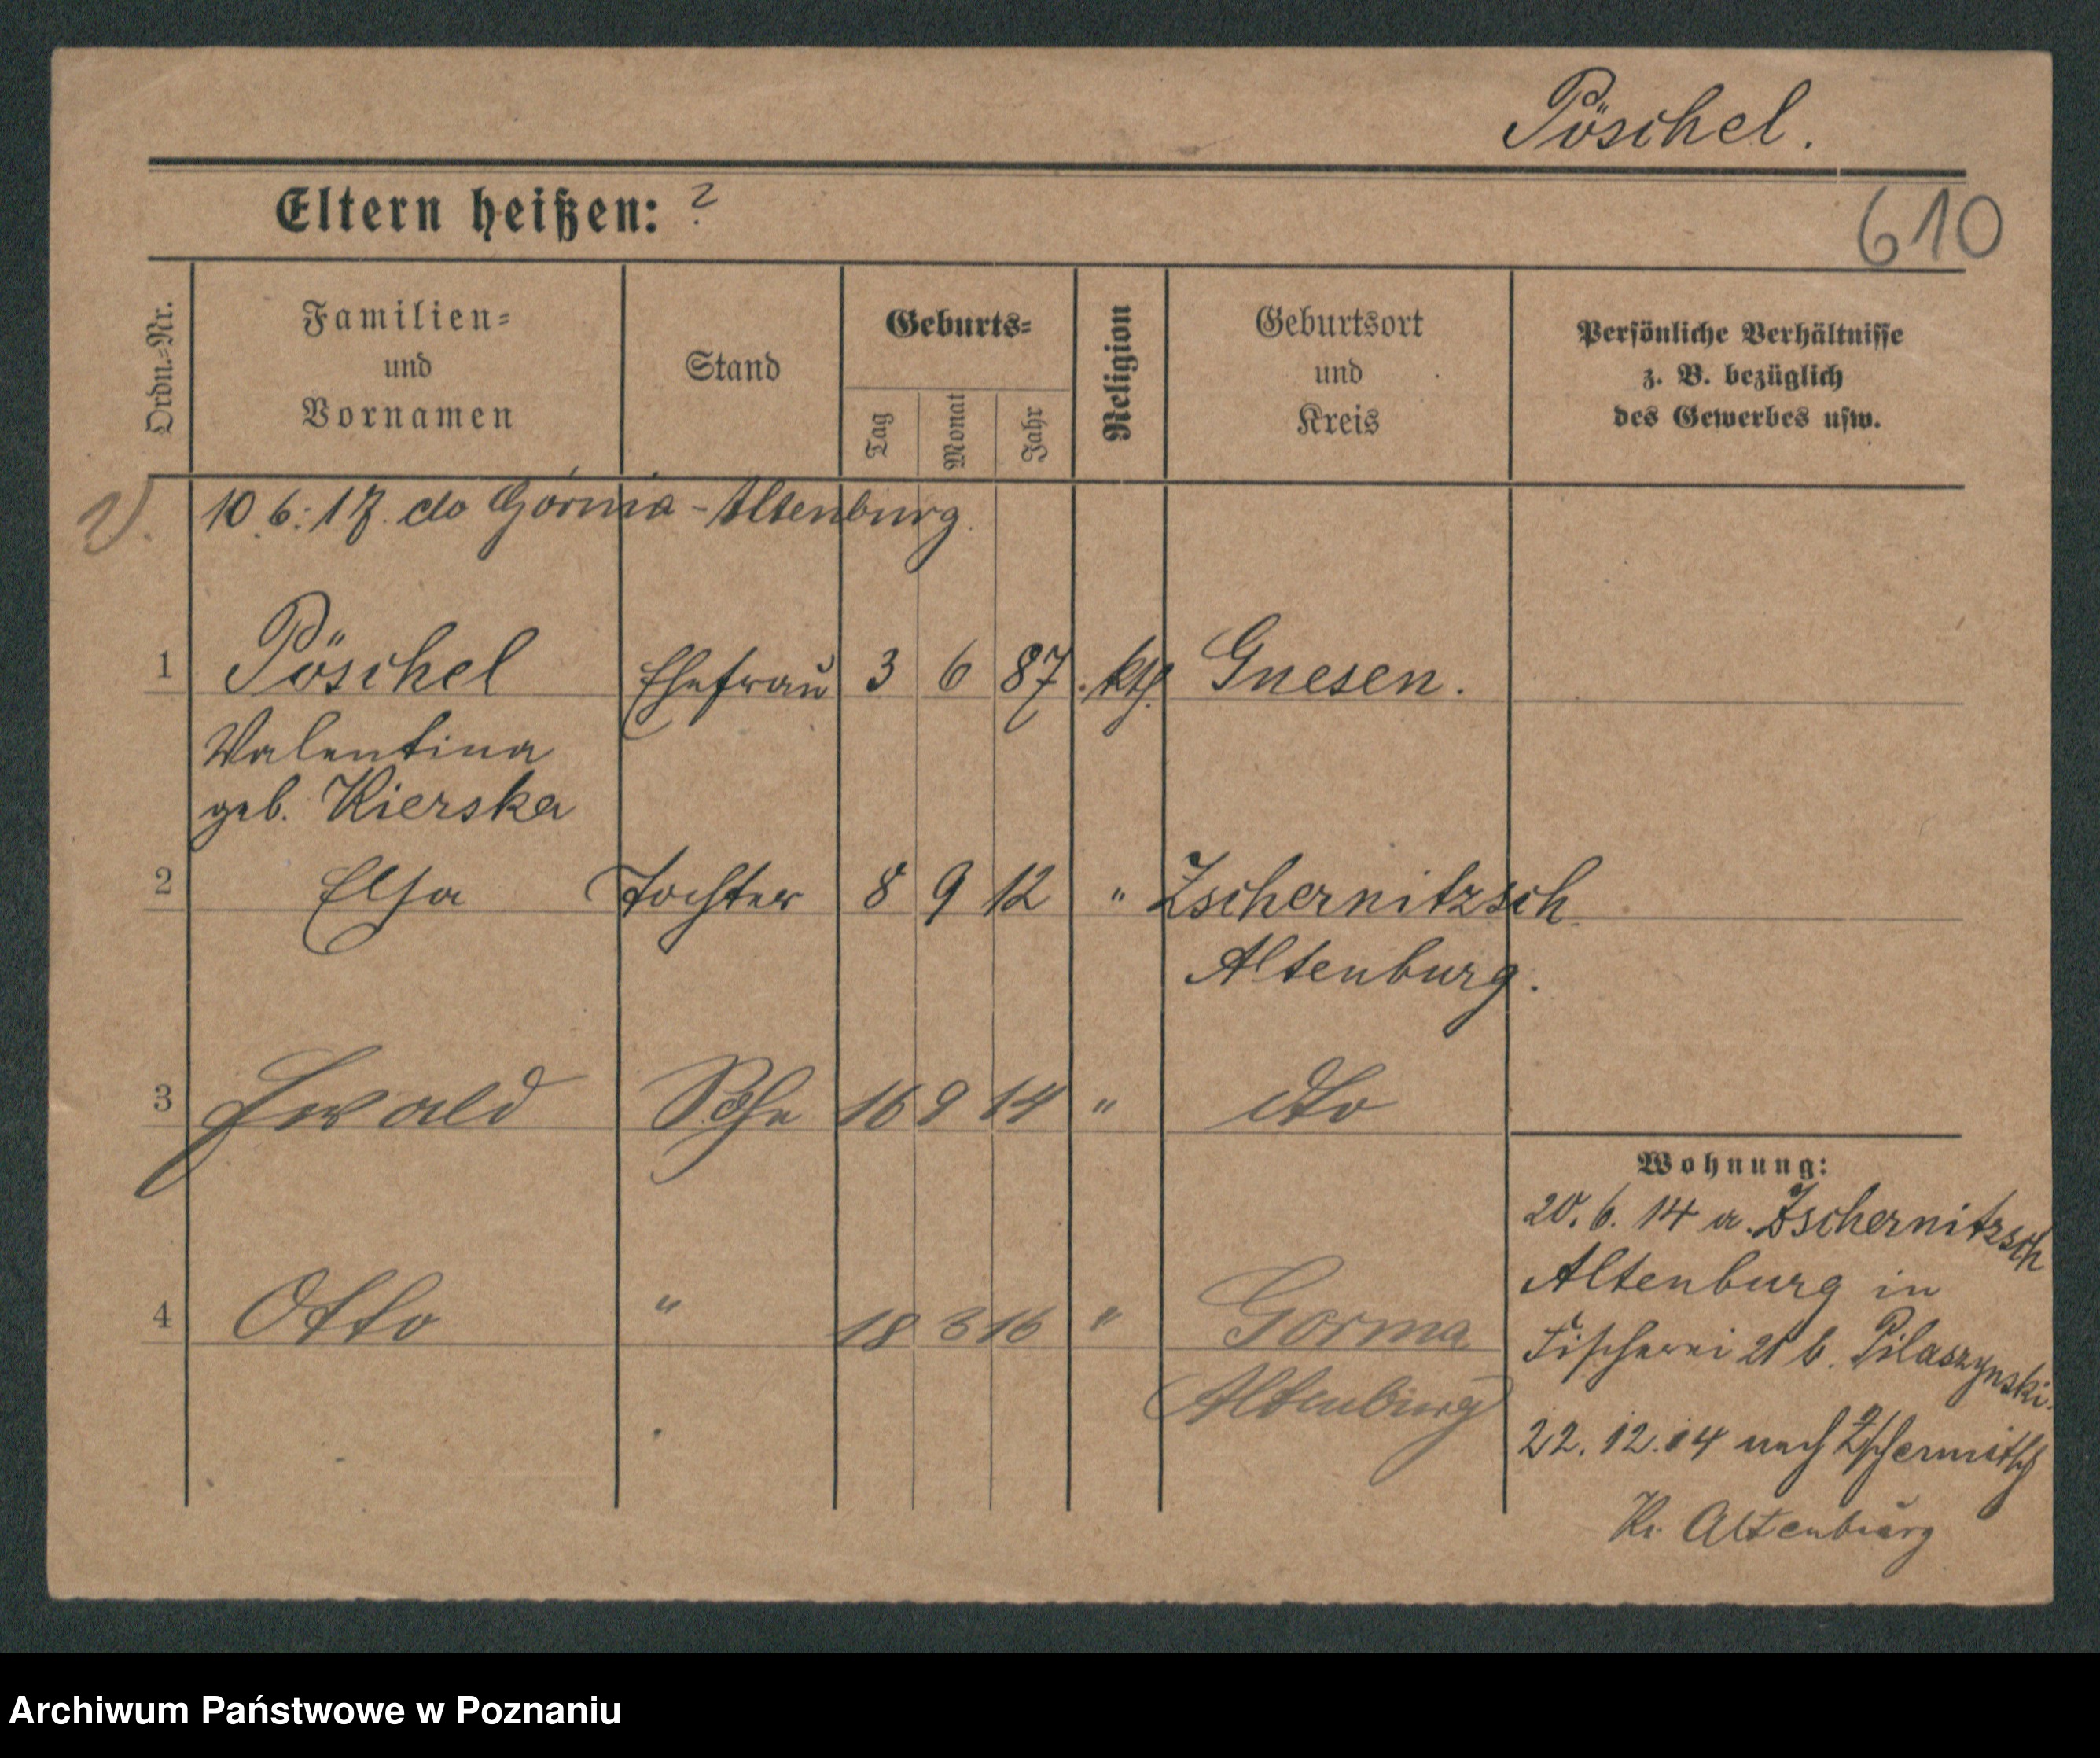 Pöschel.
Eltern heißen: ?
610
Ordn.=Nr.
Familien=
und
Vornamen
Stand
Geburts=
Tag
Monat
Jahr
Religion
Geburtsort
und
Kreis
Persönliche Verhältnisse
z. B. bezüglich
des Gewerbes usw.
V. 10.6.17. do Górnia-Altenburg.
1 Pöschel Ehefrau 3 6 87 kth. Gnesen.
Valentina
geb. Kierska
2 Elsa Tochter 8 9 12 " Zschernitzsch
Altenburg.
3 Ewald Sohn 16 9 14 " dto
Wohnung:
20.6.14 a. Zschernitzsch
Altenburg in
Fischerei 21 b. Pilaszynski.
4 Otto " 18 3 16 " Gorma
(Altenburg)
22.12.14 nach
Kr. Altenburg
Archiwum Państwowe w Poznaniu